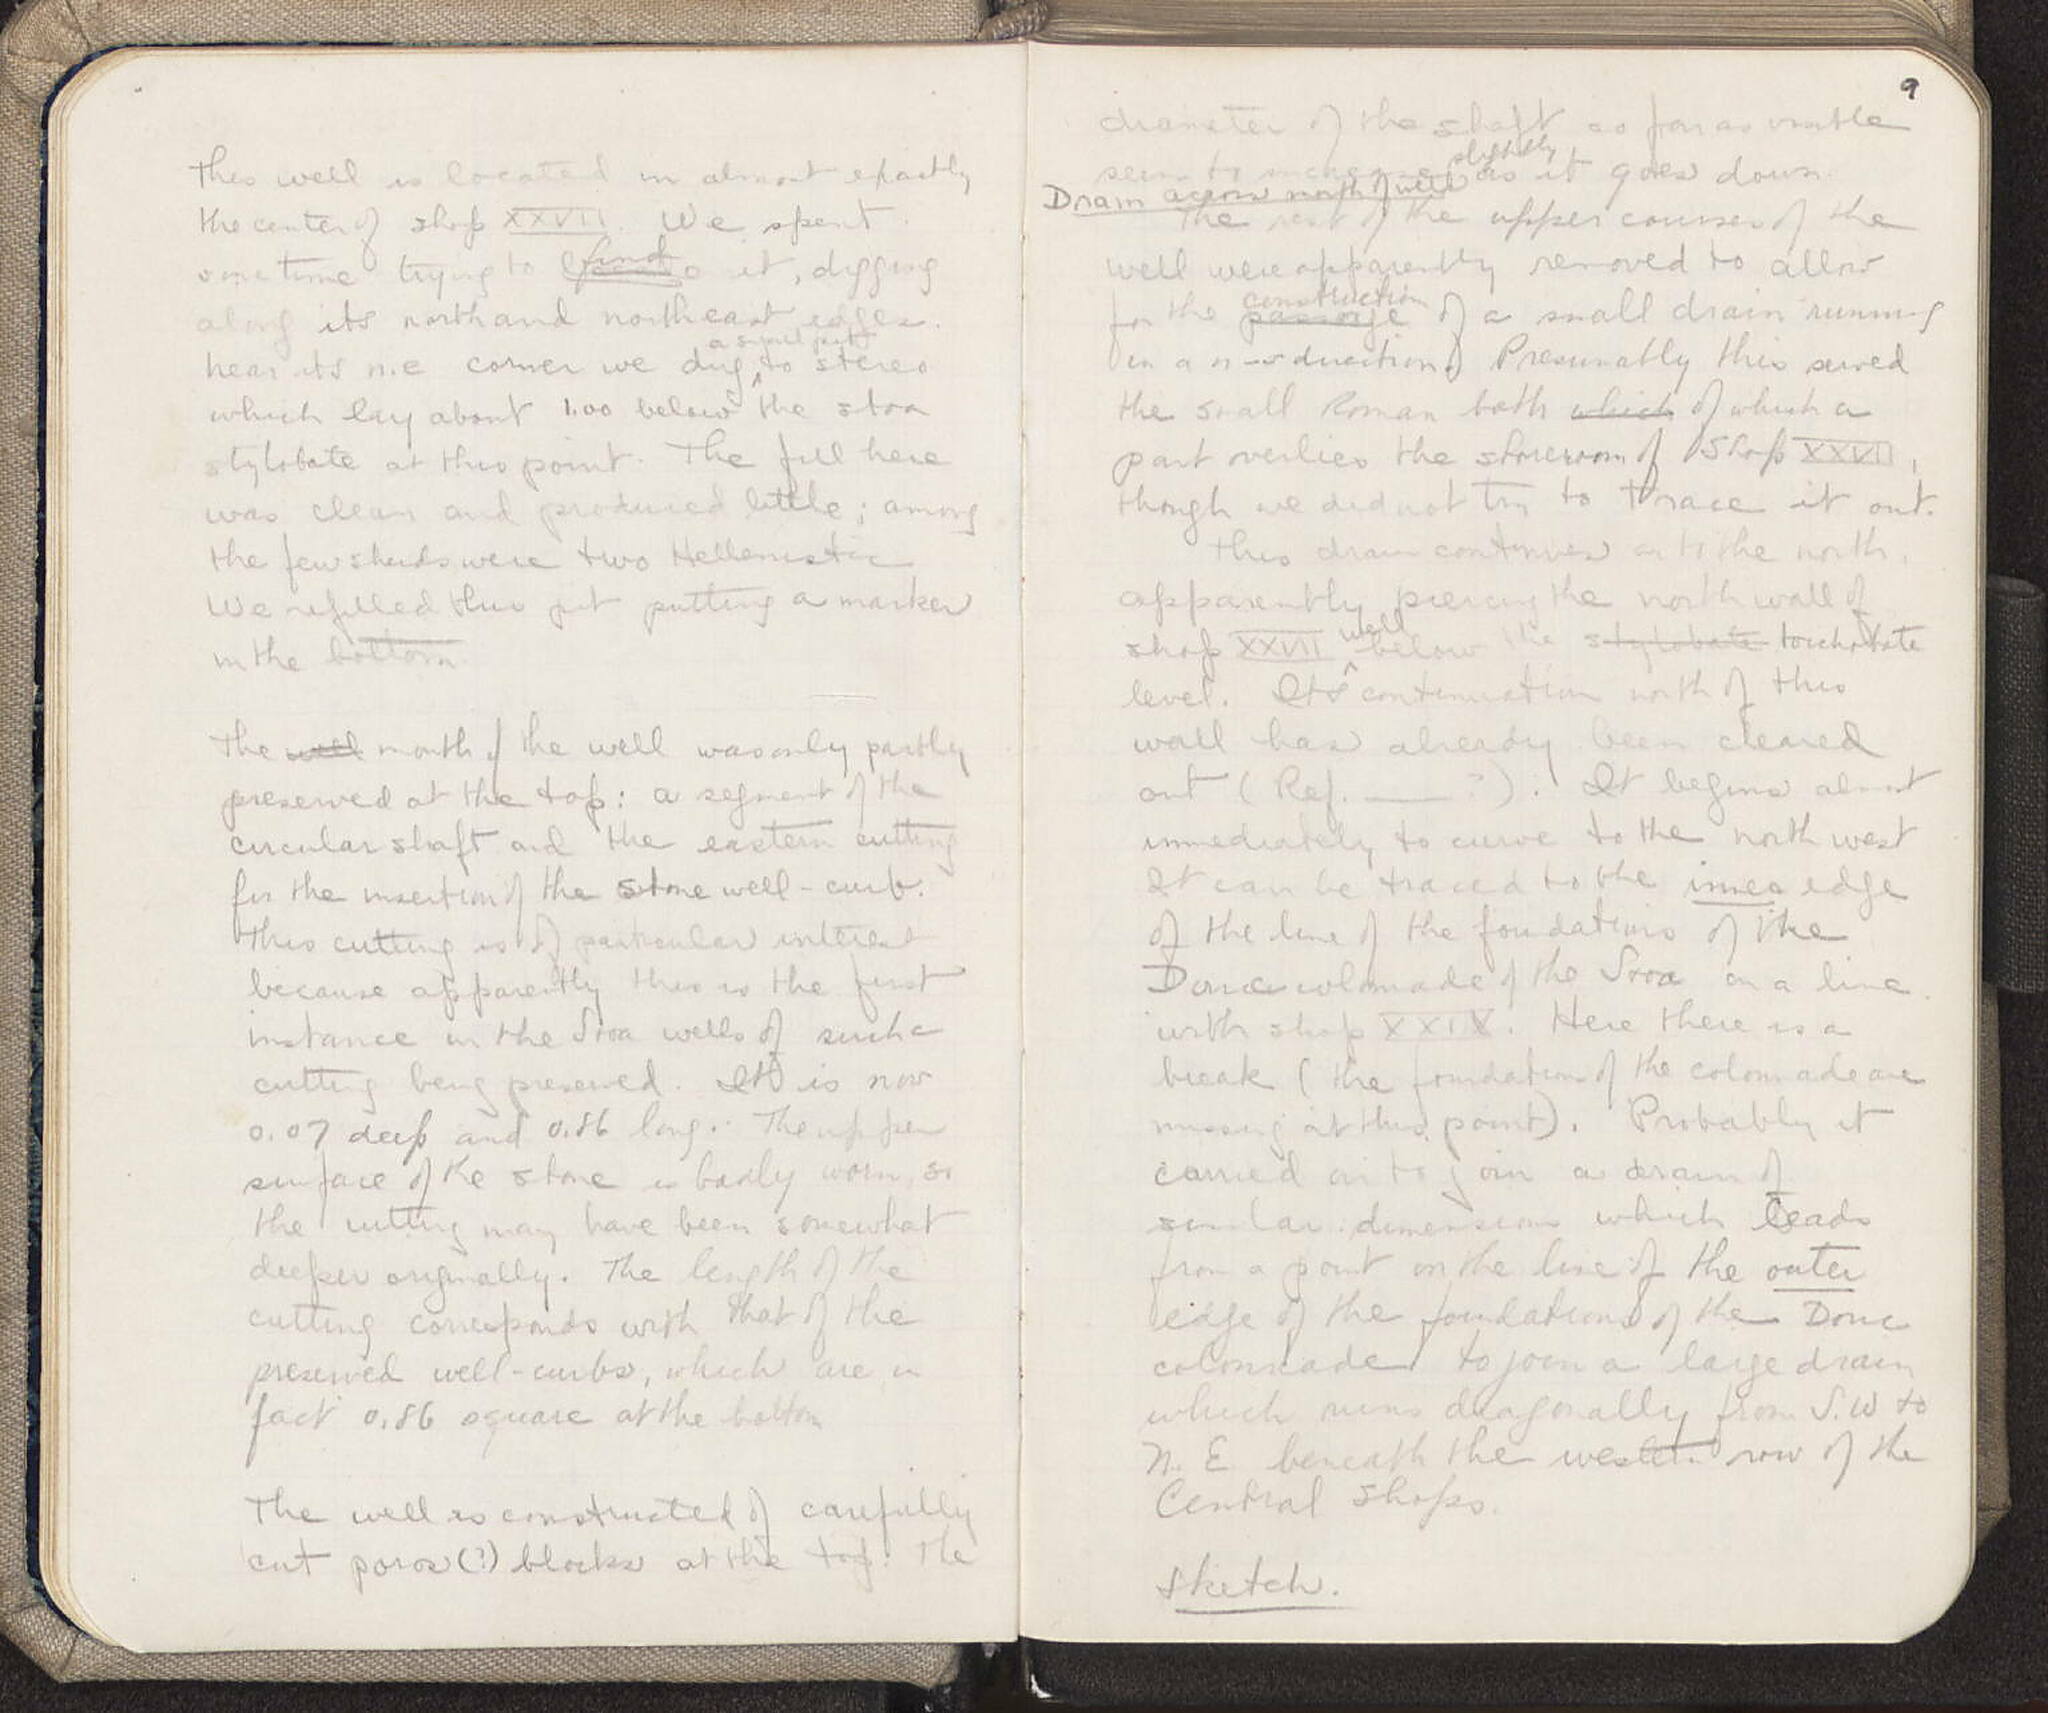 This well is located in almost exactly
the center of shop XXVII. We spent
some time trying to find it, digging
along its north and northeast edges.
Near its n.e corner we dug a small pit to stereo
which lay about 1.00 below the stoa
stylobate at this point. The fill here
was clean and produced little; among
the few sherds were two Hellenistic
We refilled this pit putting a marker
in the bottom.
The well mouth of the well was only partly
preserved at the top: a segment of the
circular shaft and the eastern cutting
for the insertion of the stone well-curb.
This cutting is of particular interest
because apparently this is the first
instance in the Stoa wells of such a
cutting being preserved. It is now
0.07 deep and 0.86 long. The upper
surface of the stone is badly worn, so
the cutting may have been somewhat
deeper originally. The length of the
cutting corresponds with that of the
preserved well-curbs, which are in
fact 0.86 square at the bottom
The well is constructed of carefully
cut poros(?) blocks at the top. The
9
diameter of the shaft so far as visible
seems to increase slightly as it goes down.
Drain across north of well
The rest of the upper courses of the
well were apparently removed to allow
for the passage construction of a small drain running
in a n-s direction. Presumably this served
the small Roman bath which of which a
part overlies the storeroom of Shop XXVII,
though we did not try to trace it out.
This drain continues on to the north,
apparently piercing the north wall of
shop XXVII well below the stylobate toichobate
level. Its continuation north of this
wall has already been cleared
out (Ref. ____ ?). It begins almost
immediately to curve to the north west
It can be traced to the inner edge
of the line of the foundations of the
Doric colonnade of the Stoa on a line
with shop XXIX. Here there is a
break (the foundations of the colonnade are
missing at this point). Probably it
carried on to join a drain of
similar dimensions which leads
from a point on the line of the outer
edge of the foundations of the Doric
colonnade to join a large drain
which runs diagonally from S.W to
N. E. beneath the western row of the
Central Shops.
Sketch.